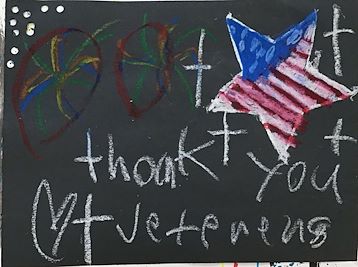 thank you
veterens